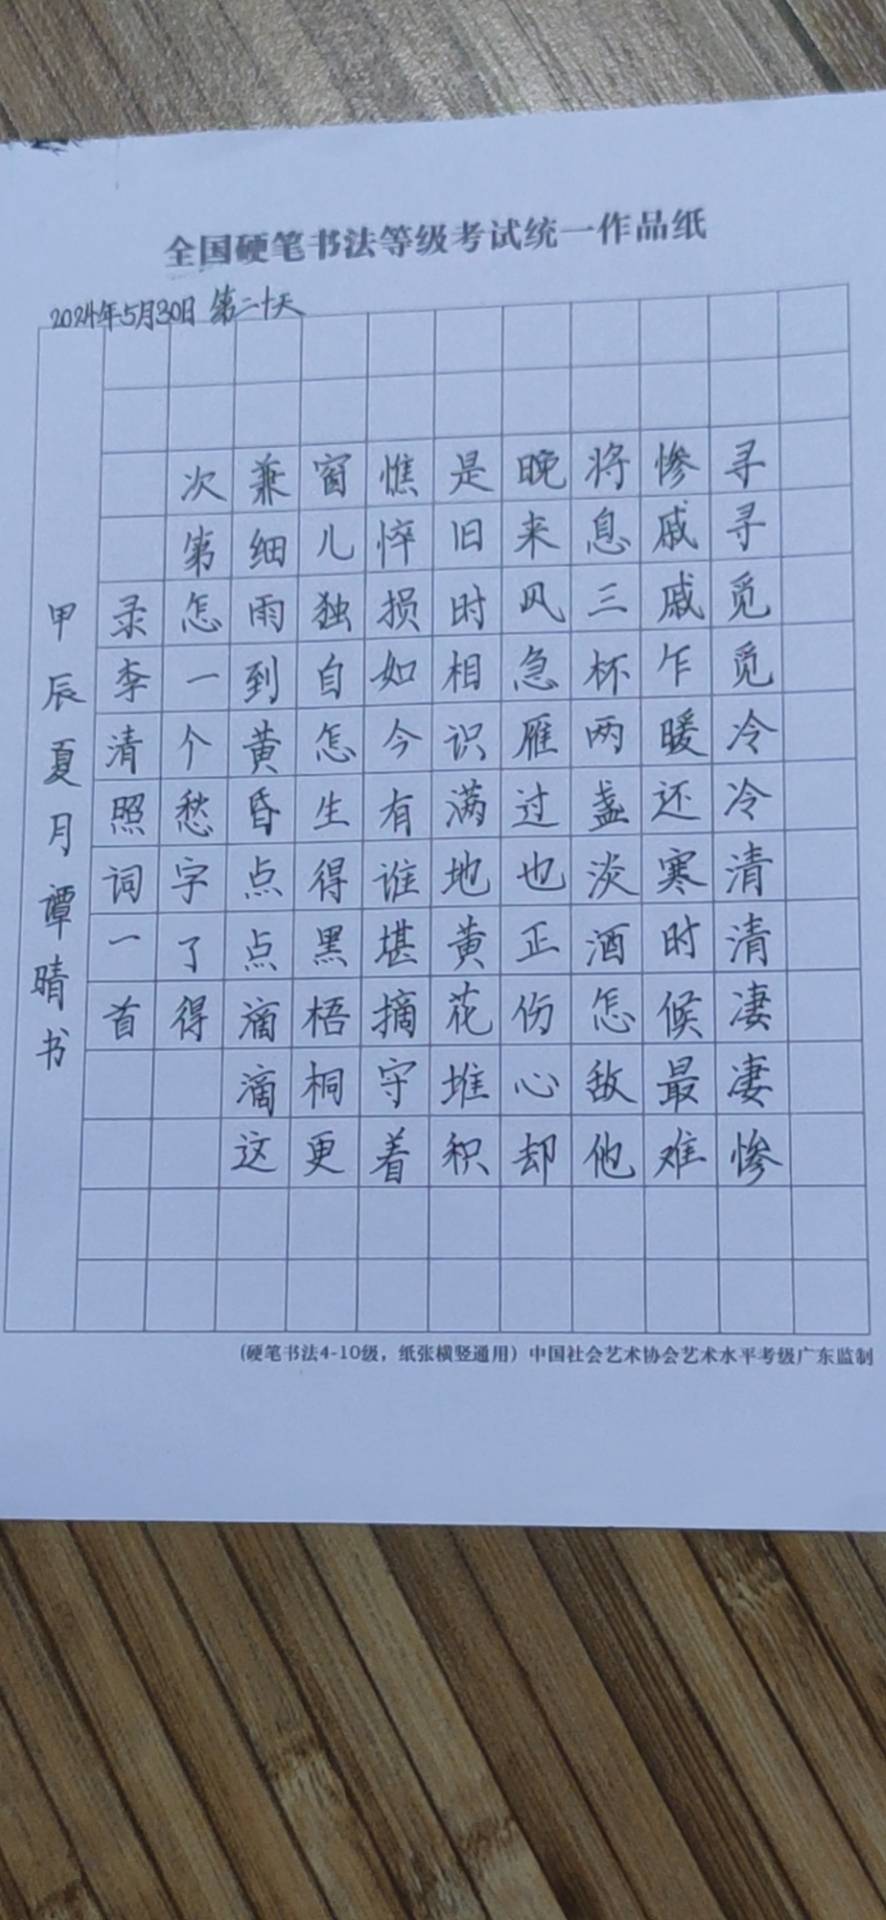 全国硬笔书法等级考试统一作品纸
2024年5月30日 第二十天
寻寻觅觅冷冷清清凄凄惨
惨戚戚乍暖还寒时候最难
将息三杯两盏淡酒怎敌他
晚来风急雁过也正伤心却
是旧时相识满地黄花堆积
憔悴损如今有谁堪摘守着
窗儿独自怎生得黑梧桐更
兼细雨到黄昏点点滴滴这
次第怎一个愁字了得
录李清照词一首
甲辰夏月谭晴书
(硬笔书法4-10级，纸张横竖通用) 中国社会艺术协会艺术水平考级广东监制